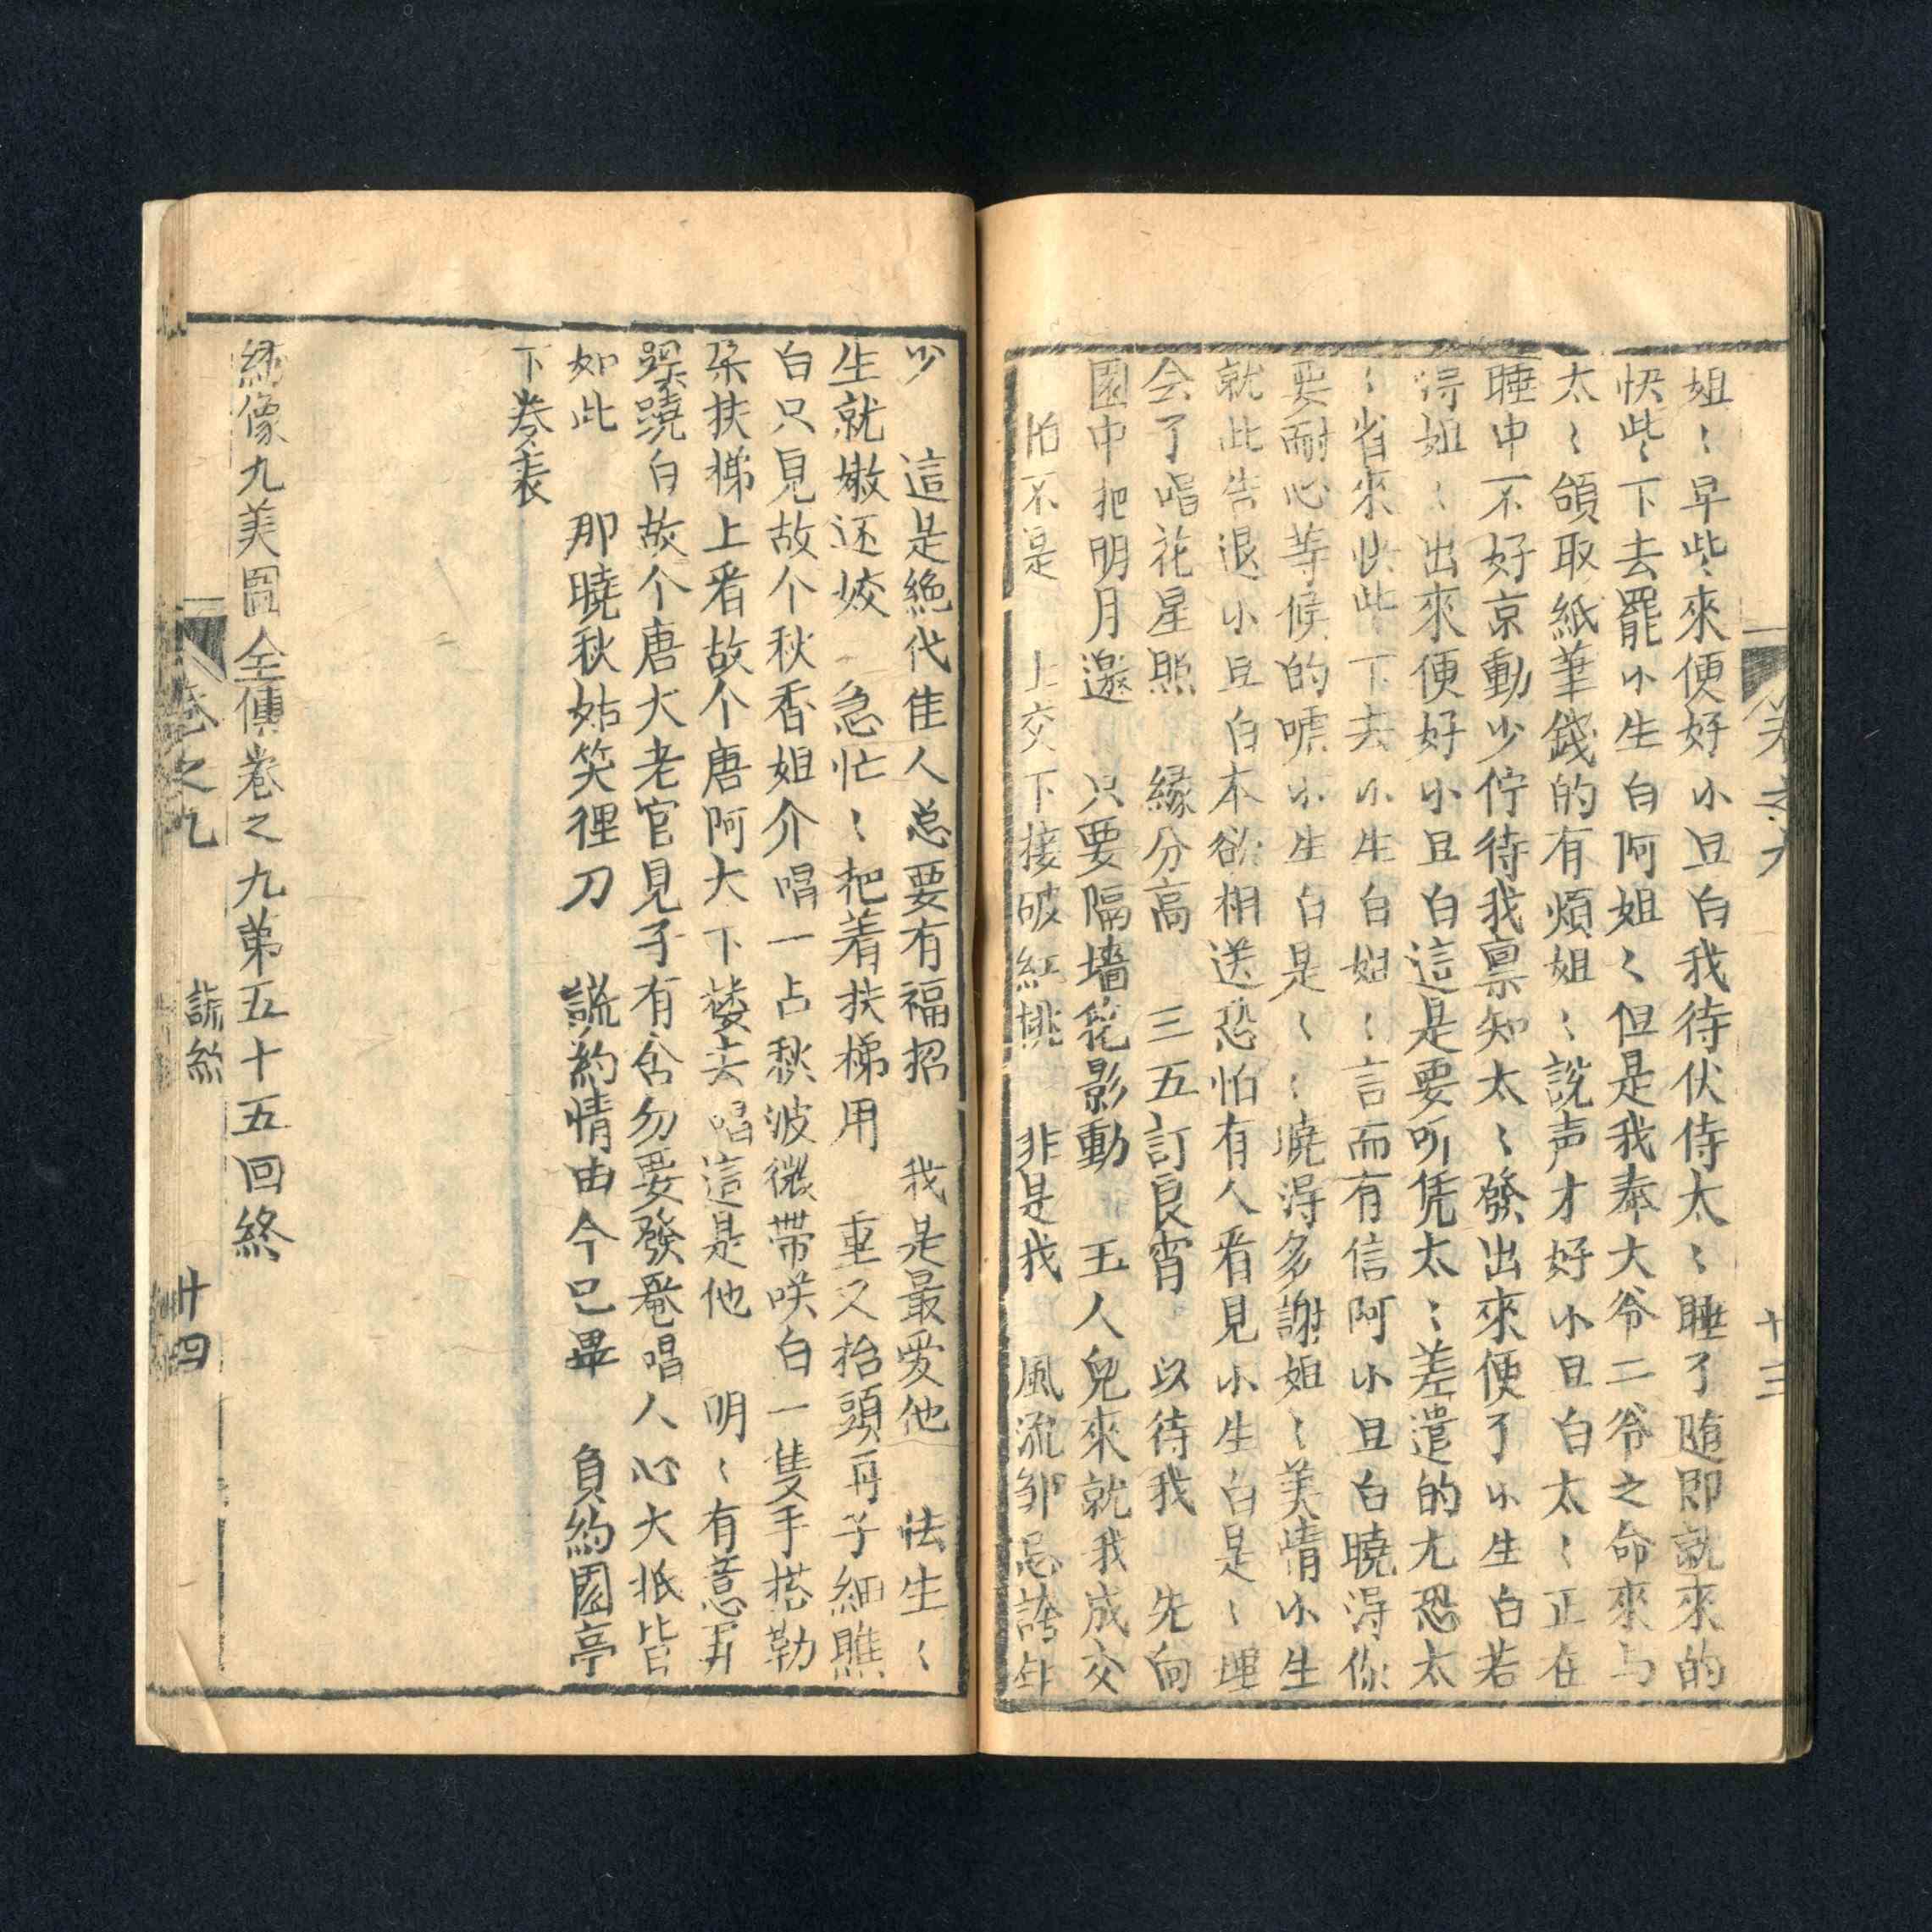 姐〻早些來便好小旦白我待伏侍太〻睡了随即就來的
快些下去罷小生白阿姐〻但是我奉大爷二爷之命來与
太〻領取紙筆錢的有煩姐〻說声才好小旦白太〻正在
睡中不好京動少佇待我禀知太〻發出來便了小生白若
淂姐〻出來便好小旦白這是要听凭太〻差遣的尤恐太
〻省來快些下去小生白姐〻言而有信阿小旦白曉淂你
要耐心等候的嘘小生白是〻〻曉淂多謝姐〻美情小生
就此告退小旦白本欲相送恐怕有人看見小生白是〻理
会了唱花星照 緣分高 三五訂良宵 以待我 先向
園中把明月邀 只要隔墻花影動 玉人兒來就我成交
怕不是 上交下接破紅桃 非是我 風流邹忌誇年
卷之九 十三
少 這是絶代隹人总要有福招 我是最爱他 怯生〻
生就嫩还姣 急忙〻把着扶梯用 重又抬頭再子細瞧
白只見故个秋香姐介唱一占秋波微帶咲白一隻手搭勒
朶扶梯上看故个唐阿大下楼去唱這是他 明〻有意弄
蹊蹺白故个唐大老官見子有舍勿要發菴唱人心大抵皆
如此 那曉秋姑笑裡刀 謊約情由今已畢 負約園亭
下巻表
绣像九美圖全傳卷之九第五十五回終
卷之九 謊約 十四